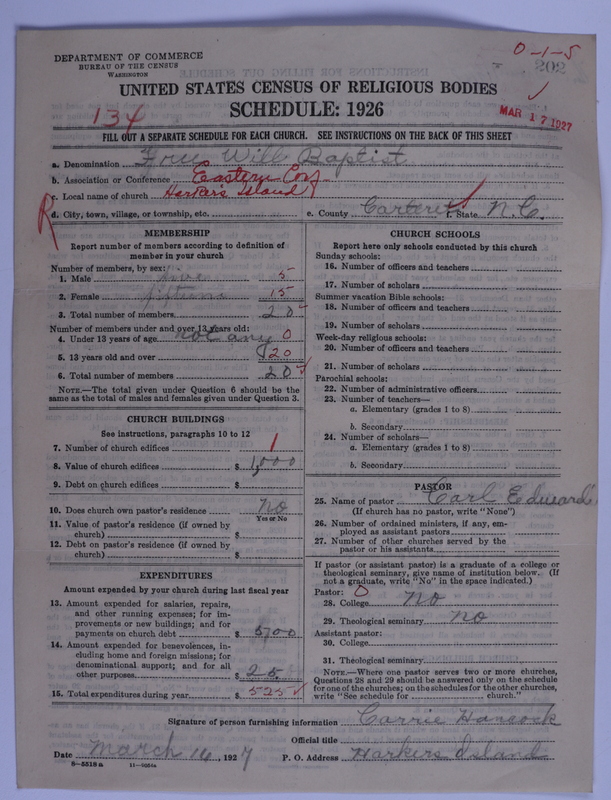 DEPARTMENT OF COMMERCE
BUREAU OF THE CENSUS
WASHINGTON
0-1-5
UNITED STATES CENSUS OF RELIGIOUS BODIES
SCHEDULE: 1926
134
MAR 17 1927
FILL OUT A SEPARATE SCHEDULE FOR EACH CHURCH. SEE INSTRUCTIONS ON THE BACK OF THIS SHEET
a. Denomination Free Will Baptist
b. Association or Conference Eastern Conf
c. Local name of church Harkers Island
R
d. City, town, village, or township, etc. e. County Carteret f. State N.C.
MEMBERSHIP
Report number of members according to definition of member in your church
Number of members, by sex:
1. Male five 5
2. Female fifteen 15
3. Total number of members 20
Number of members under and over 13 years old:
4. Under 13 years of age not any 0
5. 13 years old and over 20
6. Total number of members 20
NOTE.—The total given under Question 6 should be the same as the total of males and females given under Question 3.
CHURCH BUILDINGS
See instructions, paragraphs 10 to 12
7. Number of church edifices 1
8. Value of church edifices $ 1,000
9. Debt on church edifices $
10. Does church own pastor's residence No
Yes or No
11. Value of pastor's residence (if owned by church) $
12. Debt on pastor's residence (if owned by church) $
EXPENDITURES
Amount expended by your church during last fiscal year
13. Amount expended for salaries, repairs, and other running expenses; for improvements or new buildings; and for payments on church debt $ 500
14. Amount expended for benevolences, including home and foreign missions; for denominational support; and for all other purposes $ 25
15. Total expenditures during year $ 525
CHURCH SCHOOLS
Report here only schools conducted by this church
Sunday schools:
16. Number of officers and teachers
17. Number of scholars
Summer vacation Bible schools:
18. Number of officers and teachers
19. Number of scholars
Week-day religious schools:
20. Number of officers and teachers
21. Number of scholars
Parochial schools:
22. Number of administrative officers
23. Number of teachers—
a. Elementary (grades 1 to 8)
b. Secondary
24. Number of scholars—
a. Elementary (grades 1 to 8)
b. Secondary
PASTOR
25. Name of pastor Carl Edward
(If church has no pastor, write "None")
26. Number of ordained ministers, if any, employed as assistant pastors
27. Number of other churches served by the pastor or his assistants
If pastor (or assistant pastor) is a graduate of a college or theological seminary, give name of institution below. (If not a graduate, write "No" in the space indicated.)
Pastor: 0
28. College no
29. Theological seminary no
Assistant pastor:
30. College
31. Theological seminary
NOTE.—Where one pastor serves two or more churches, Questions 28 and 29 should be answered only on the schedule for one of the churches; on the schedules for the other churches, write "See schedule for church."
Signature of person furnishing information Carrie Hancock
Official title
Date March 16, 1927 P. O. Address Harkers Island
8-5518a